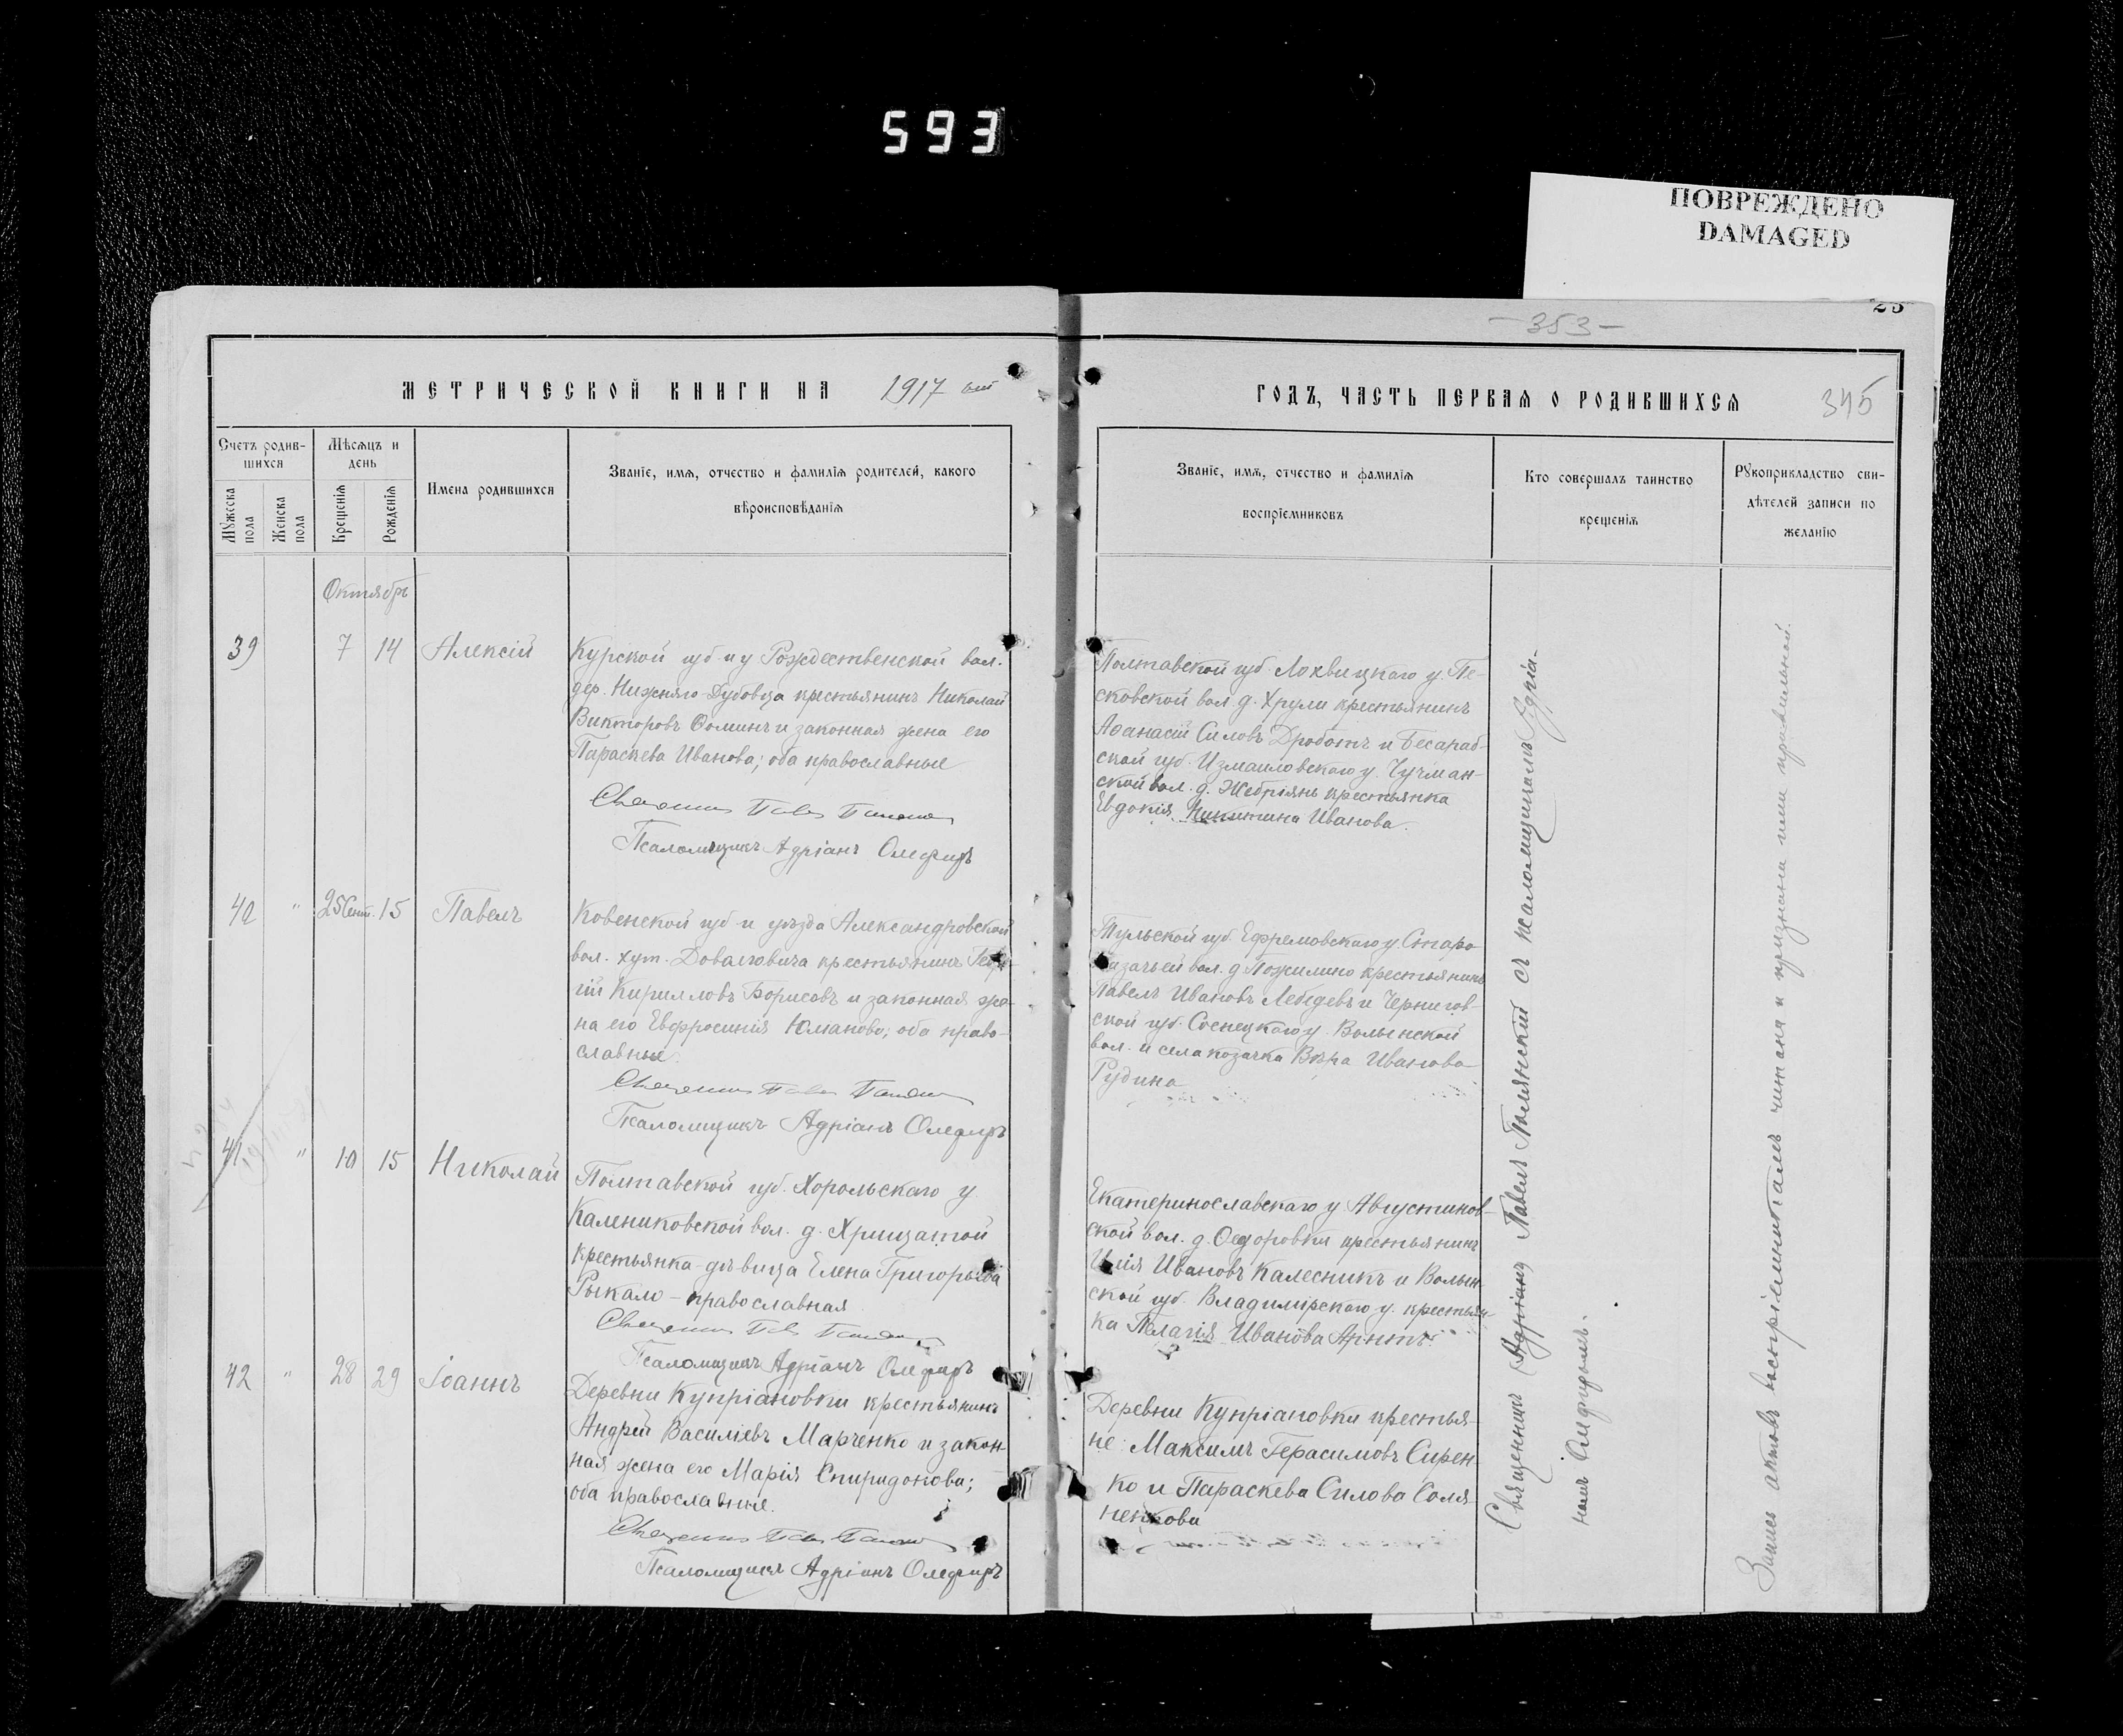 593
ПОВРЕЖДЕНО
DAMAGED
25
-353-
МЕТРИЧЕСКОЙ КНИГИ НА 1917
ГОДЪ, ЧАСТЬ ПЕРВАЯ О РОДИВШИХСЯ 345
Счетъ родив-
шихся
Мужеска пола
Женска пола
Мѣсяцъ и
день
Крещенія
Рожденія
Имена родившихся
Званіе, имя, отчество и фамилія родителей, какого
вѣроисповѣданія
Званіе, имя, отчество и фамилія
воспріемниковъ
Кто совершалъ таинство
крещенія
Рукоприкладство сви-
дѣтелей записи по
желанію
Октябрь
39 7 14 Алексій
Курской губ. и у Рождественской вол.
дер. Нижняго Дубовца крестьянинъ Николай
Викторовъ Ѳоминъ и законная жена его
Параскева Иванова; оба православные
Псаломщикъ Адріанъ Олефиръ
Полтавской губ. Лохвицкаго у. Пе-
сковской вол. д. Хрули крестьянинъ
Аѳанасій Силовъ Дроботъ и Бесараб-
ской губ. Измаиловскаго у.
ской вол. д. Жебріянъ крестьянка
Евдокія Никитина Иванова.
40 " 25 Сент. 15 Павелъ
Ковенской губ. и уѣзда Александровской
вол. хут. Довалговича крестьянинъ Геор-
гій Кирилловъ Борисовъ и законная же-
на его Евфросинія Юманова; оба право-
славные.
Псаломщикъ Адріанъ Олефиръ
Тульской губ. Ефремовскаго у. Старо-
казачьей вол. д. Пожилино крестьянинъ
Павелъ Ивановъ Лебедевъ и Чернигов-
ской губ. Сосницкаго у. Волынской
вол. и села козачка Вѣра Иванова
Рудина
41 " 10 15 Николай
Полтавской губ. Хорольскаго у.
Калениковской вол. д. Хрищатой
крестьянка-дѣвица Елена Григорьева
Рыкало - православная
Псаломщикъ Адріанъ Олефиръ
Екатеринославскаго у Августинов-
ской вол. д. Ѳедоровки крестьянинъ
Илія Ивановъ Калесникъ и Волын-
ской губ. Владимірскаго у. крестьян-
ка Пелагія Иванова Арнтъ.
42 " 28 29 Іоаннъ
Деревни Купріановки крестьянинъ
Андрей Василіевъ Марченко и закон-
ная жена его Марія Спиридонова;
оба православные.
Псаломщикъ Адріанъ Олефиръ
Деревни Купріановки крестья-
не: Максимъ Герасимовъ Сирен-
ко и Параскева Силова Соля-
ненкова
Священникъ Павелъ съ псаломщикомъ Адріа-
номъ Олефиромъ.
Запись актовъ воспріемникамъ читана и признана ими правильной.